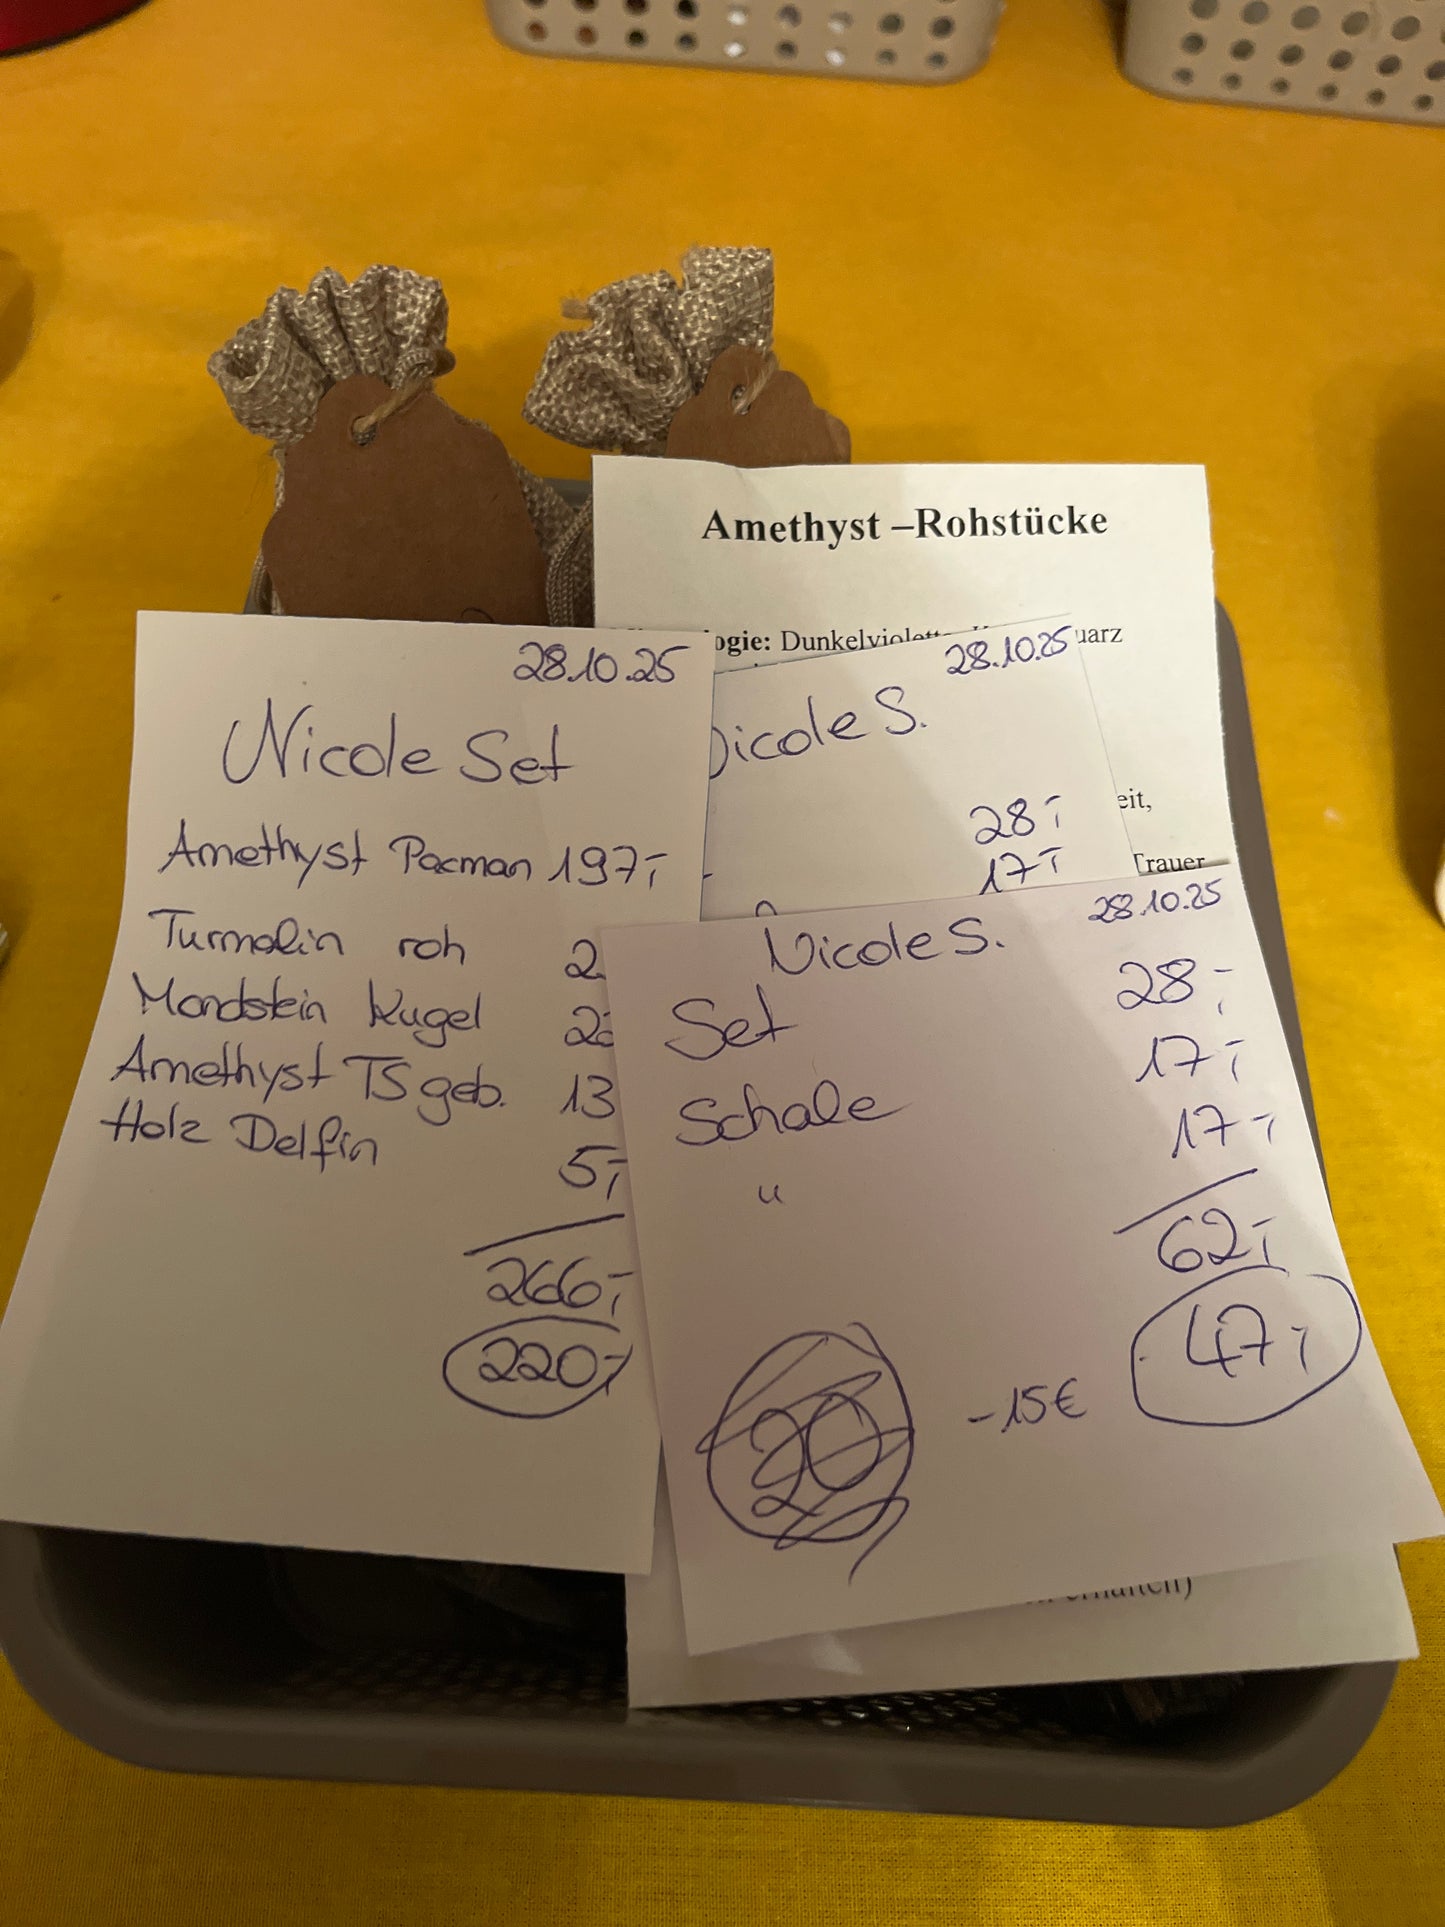 Amethyst –Rohstücke
ogie: Dunkelviolette uarz
eit,
Trauer
28.10.25
Nicole Set
Amethyst Pacman 197,-
Turmalin roh 2
Mondstein Kugel 22
Amethyst TS geb. 13
Holz Delfin 5,-
266,-
220,-
28.10.25
Nicole S.
28,-
17,-
28.10.25
Nicole S.
Set 28,-
Schale 17,-
" 17,-
62,-
47,-
20 -15€
erhalten)